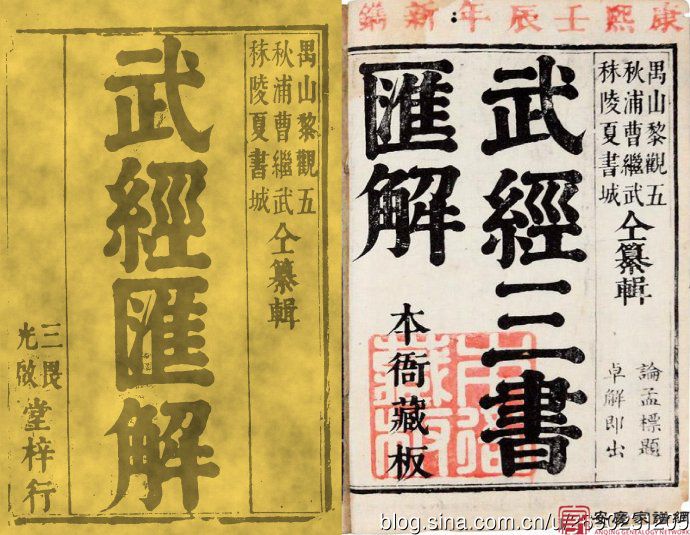 禺山黎觀五
秋浦曹繼武
秣陵夏書城
仝纂輯
武經匯解
三畏
光啟
堂梓行
康熙壬辰年新鐫
禺山黎觀五
秋浦曹繼武
秣陵夏書城
仝纂輯
論孟標題
卓解即出
武經三書
匯解
本衙藏板
blog.sina.com.cn/u/
安慶家譜網
ANQING GENEALOGY NETWORK